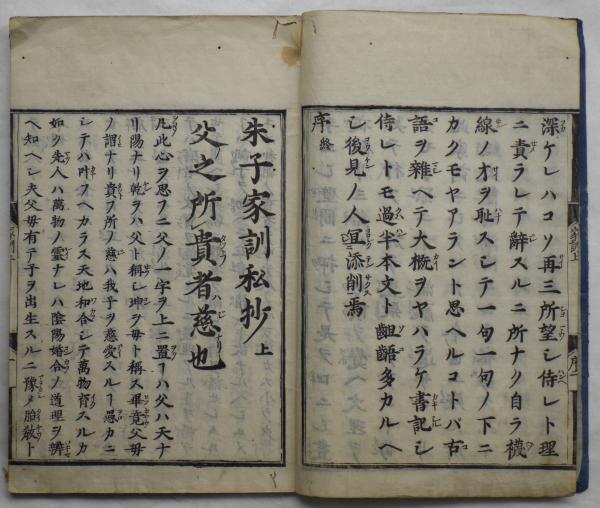 深ケレハコソ再三所望シ侍レト理
ニ責ラレテ辭スルニ所ナク自ラ襪
線ノオヲ恥スシテ一句一句ノ下ニ
カクモヤアラント思ヘルコトバ古
語ヲ雜ヘテ大概ヲヤハラケ書記シ
侍レトモ過半本文ト齟齬多カルヘ
シ後見ノ人宜添削焉
序終
朱子家訓私抄上
父之所貴者慈也
凡此心ヲ思フニ父ノ一字ヲ上ニ置ヿハ父ハ天ナ
リ陽ナリ乾ヲハ父ト稱シ坤ヲ母ト稱ス畢竟父母
ノ謂ナリ貴フ所ノ慈ハ我子ヲ慈愛スルヿ愚カニ
シテハ叶フヘカラス天地和合シテ萬物育スルカ
如ク先人ハ萬物ノ靈ナレハ陰陽婚合ノ道理ヲ辨
ヘ知ヘシ夫父母有テ子ヲ出生スルニ豫メ胎教ト